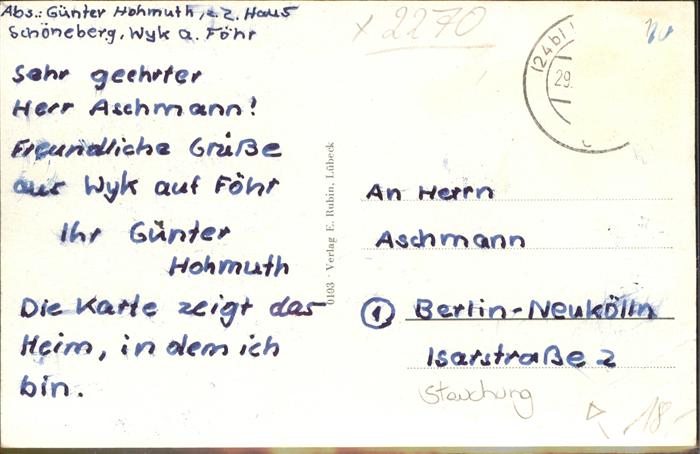 Abs.: Günter Hohmuth, z. Z. Haus
Schöneberg, Wyk a. Föhr
Sehr geehrter
Herr Aschmann!
Freundliche Grüße
aus Wyk auf Föhr
Ihr Günter
Hohmuth
Die Karte zeigt das
Heim, in dem ich
bin.
0103 · Verlag E. Rubin, Lübeck
x 2270
(24b)
29.
An Herrn
Aschmann
1 Berlin-Neukölln
Isarstraße 2
Stauchung
18.-